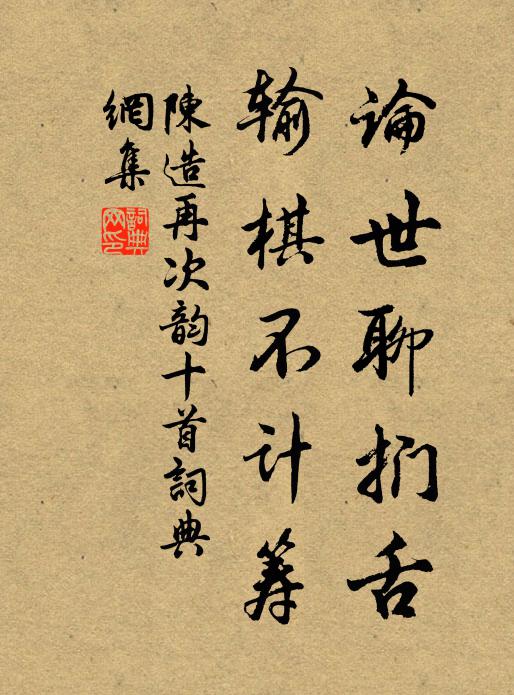 論世聊捫舌
输棋不计筹
陳造再次韵十首詞典
網集
詞典
网印